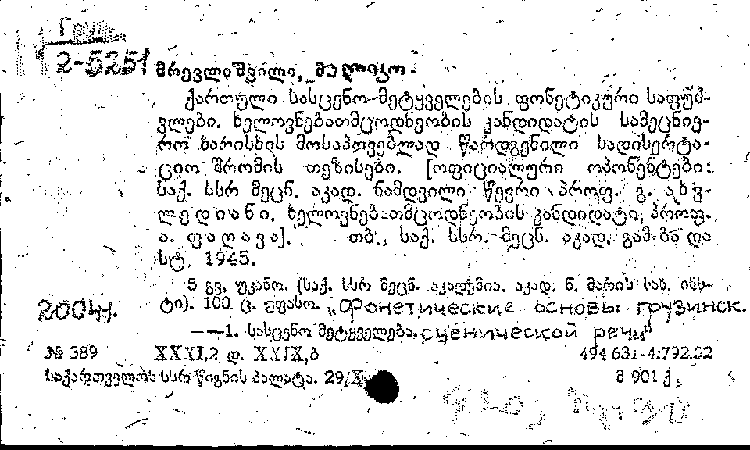 Груз.
2-5251
მრევლიშვილი, მელიკო.
ქართული სასცენო მეტყველების ფონეტიკური საფუძ-
ვლები. ხელოვნებათმცოდნეობის კანდიდატის სამეცნიე-
რო ხარისხის მოსაპოვებლად წარდგენილი სადისერტა-
ციო შრომის თეზისები. [ოფიციალური ოპონენტები:
საქ. სსრ მეცნ. აკად. ნამდვილი წევრი პროფ. გ. ახვ-
ლედიანი, ხელოვნებათმცოდნეობის კანდიდატი, პროფ.
ა. ფაღავა]. თბ., საქ. სსრ მეცნ. აკად. გამ-ბა და
სტ. 1945.
5 გვ. უყანო. (საქ. სსრ მეცნ. აკადემია. აკად. ნ. მარის სახ. ინს-
ტი). 100 ც. უფასო. „Фонетические основы грузинск.
2004г.
——1. სასცენო მეტყველება. сценической речи"
№ 389 XXXI,2 დ. XXIX,ბ 494 631-4:792.22
საქართველოს სსრ წიგნის პალატა. 29/X 8 901 ქ.